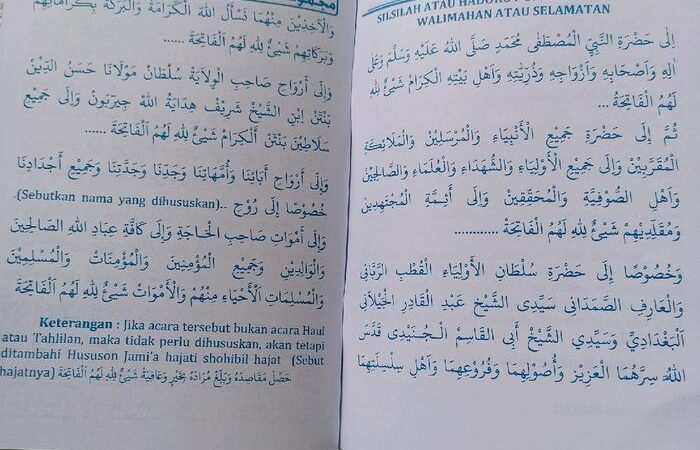 SILSILAH ATAU
WALIMAHAN ATAU SELAMATAN
إِلَى حَضْرَةِ النَّبِيِّ الْمُصْطَفَى مُحَمَّدٍ صَلَّى اللهُ عَلَيْهِ وَسَلَّمَ وَعَلَى
اٰلِهِ وَاَصْحَابِهِ وَاَزْوَاجِهِ وَذُرِّيَّتِهِ وَاَهْلِ بَيْتِهِ الْكِرَامِ شَيْئٌ لِلّٰهِ
لَهُمُ الْفَاتِحَةُ ...
ثُمَّ إِلَى حَضْرَةِ جَمِيْعِ الْأَنْبِيَاءِ وَالْمُرْسَلِيْنَ وَالْمَلَائِكَةِ
الْمُقَرَّبِيْنَ وَإِلَى جَمِيْعِ الْأَوْلِيَاءِ وَالشُّهَدَاءِ وَالْعُلَمَاءِ وَالصَّالِحِيْنَ
وَأَهْلِ الصُّوْفِيَّةِ وَالْمُحَقِّقِيْنَ وَإِلَى أَئِمَّةِ الْمُجْتَهِدِيْنَ
وَمُقَلِّدِيْهِمْ شَيْئٌ لِلّٰهِ لَهُمُ الْفَاتِحَةُ .............
وَخُصُوْصًا إِلَى حَضْرَةِ سُلْطَانِ الْأَوْلِيَاءِ الْقُطْبِ الرَّبَّانِى
وَالْعَارِفِ الصَّمَدَانِى سَيِّدِى الشَّيْخِ عَبْدِ الْقَادِرِ الْجَيْلَانِى
اَلْبَغْدَادِيِّ وَسَيِّدِى الشَّيْخِ أَبِى الْقَاسِمِ الْجُنَيْدِى قَدَّسَ
اللهُ سِرَّهُمَا الْعَزِيْزِ وَأُصُوْلِهِمَا وَفُرُوْعِهِمَا وَأَهْلِ سِلْسِلَتِهِمَا
وَالْأٰخِذِيْنَ مِنْهُمَا نَسْأَلُ اللهَ الْكَرَامَةَ وَالْبَرَكَةَ بِكَرَامَاتِهِمْ
وَبَرَكَاتِهِمْ شَيْئٌ لِلّٰهِ لَهُمُ الْفَاتِحَةُ ......
وَإِلَى أَرْوَاحِ صَاحِبِ الْوِلَايَةِ سُلْطَان مَوْلَانَا حَسَنُ الدِّيْنْ
بَنْتَنْ اِبْنِ الشَّيْخْ شَرِيْفْ هِدَايَةُ اللهْ چِيْرَبَوْنْ وَإِلَى جَمِيْعِ
سَلَاطِيْنَ بَنْتَنْ اَلْكِرَامْ شَيْئٌ لِلّٰهِ لَهُمْ اَلْفَاتِحَةُ ......
وَإِلَى أَرْوَاحِ أٰبَائِنَا وَأُمَّهَاتِنَا وَجَدِّنَا وَجَدَّتِنَا وَجَمِيْعِ أَجْدَادِنَا
خُصُوْصًا إِلَى رُوْحِ ..(Sebutkan nama yang dihususkan).
وَإِلَى أَمْوَاتِ صَاحِبِ الْحَاجَةِ وَإِلَى كَافَّةِ عِبَادِ اللهِ الصَّالِحِيْنَ
وَالْوَالِدِيْنَ وَجَمِيْعِ الْمُؤْمِنِيْنَ وَالْمُؤْمِنَاتْ وَالْمُسْلِمِيْنَ
وَالْمُسْلِمَاتِ اَلْأَحْيَاءِ مِنْهُمْ وَالْأَمْوَاتْ شَيْئٌ لِلّٰهِ لَهُمُ الْفَاتِحَةُ
Keterangan : Jika acara tersebut bukan acara Haul
atau Tahlilan, maka tidak perlu dihususkan, akan tetapi
ditambahi Hususon Jami'a hajati shohibil hajat (Sebut
hajatnya) حَصِّلْ مَقَاصِدَهُ وَبَلِّغْ مُرَادَهُ بِخَيْرٍ وَعَافِيَةٍ شَيْئٌ لِلّٰهِ لَهُمُ الْفَاتِحَةُ)